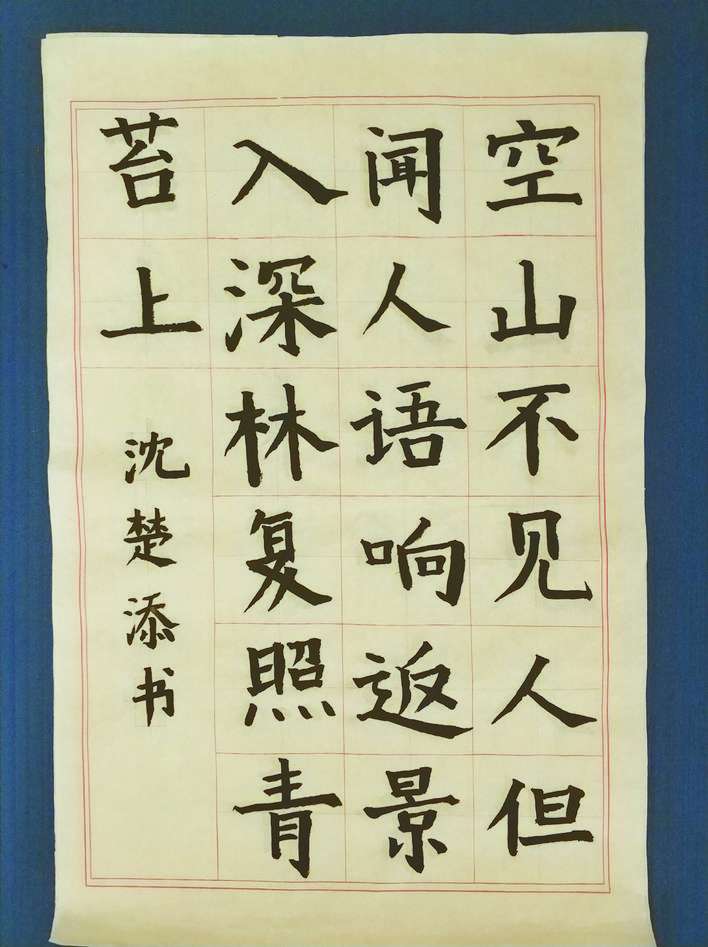 空山不见人但
闻人语响返景
入深林复照青
苔上
沈楚添书